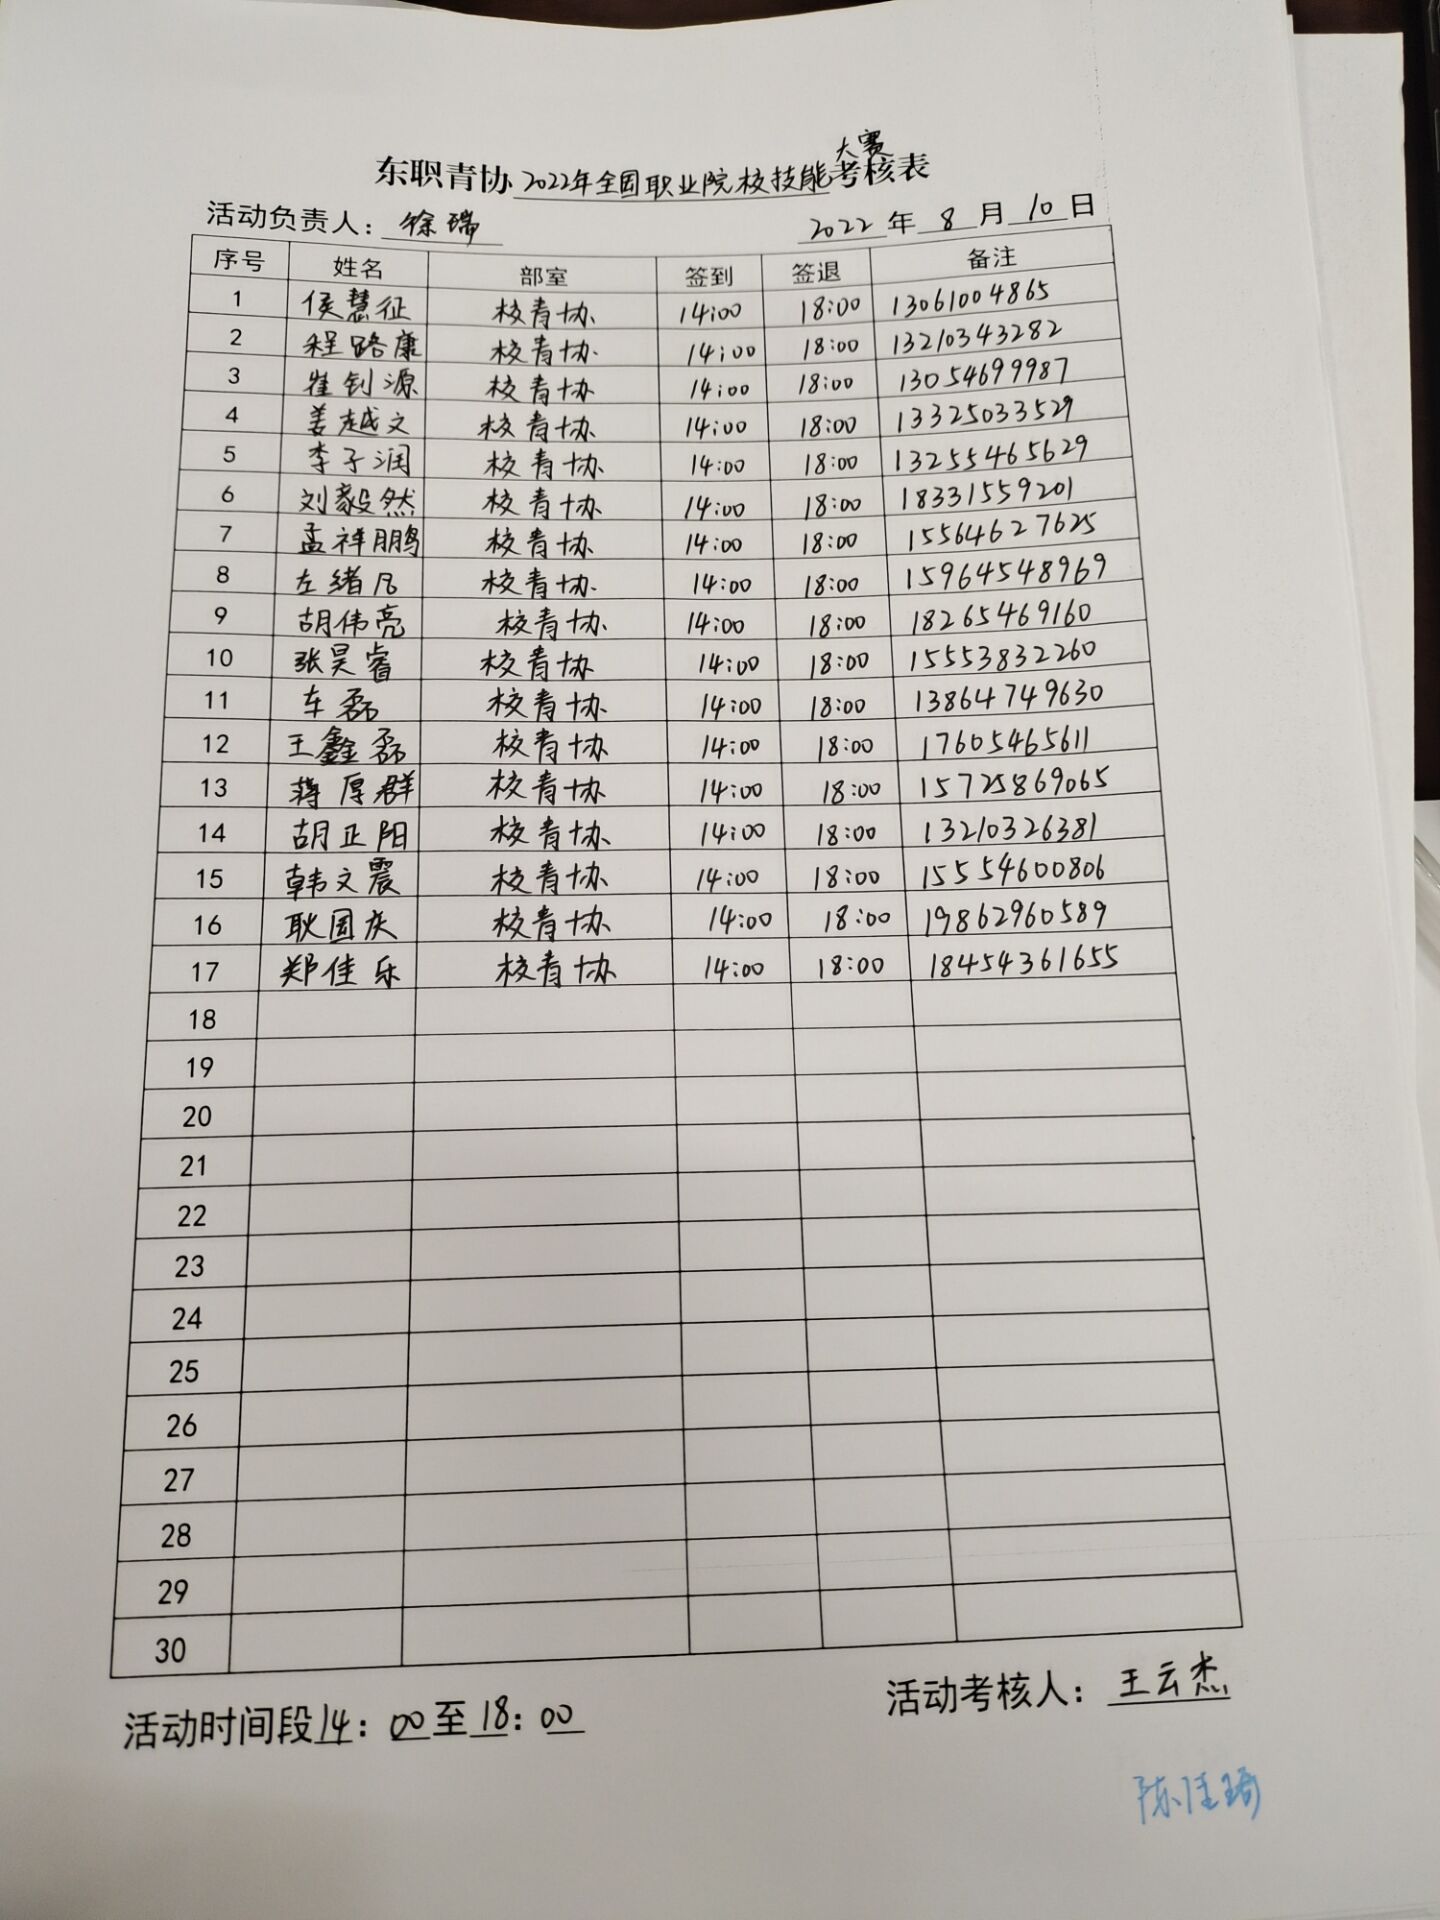 东职青协2022年全国职业院校技能大赛考核表
活动负责人：徐瑞 2022年8月10日
序号 姓名 部室 签到 签退 备注
1 侯慧征 校青协 14:00 18:00 13061004865
2 程路康 校青协 14:00 18:00 13210343282
3 崔钊源 校青协 14:00 18:00 13054699987
4 姜越文 校青协 14:00 18:00 13325033529
5 李子润 校青协 14:00 18:00 13255465629
6 刘毅然 校青协 14:00 18:00 18331559201
7 孟祥鹏 校青协 14:00 18:00 15564627625
8 左绪凡 校青协 14:00 18:00 15964548969
9 胡伟亮 校青协 14:00 18:00 18265469160
10 张昊睿 校青协 14:00 18:00 15553832260
11 车磊 校青协 14:00 18:00 13864749630
12 王鑫磊 校青协 14:00 18:00 17605465611
13 蒋厚群 校青协 14:00 18:00 15725869065
14 胡正阳 校青协 14:00 18:00 13210326381
15 韩文震 校青协 14:00 18:00 15554600806
16 耿国庆 校青协 14:00 18:00 19862960589
17 郑佳乐 校青协 14:00 18:00 18454361655
18
19
20
21
22
23
24
25
26
27
28
29
30
活动时间段14：00至18：00 活动考核人：王云杰
陈佳琦